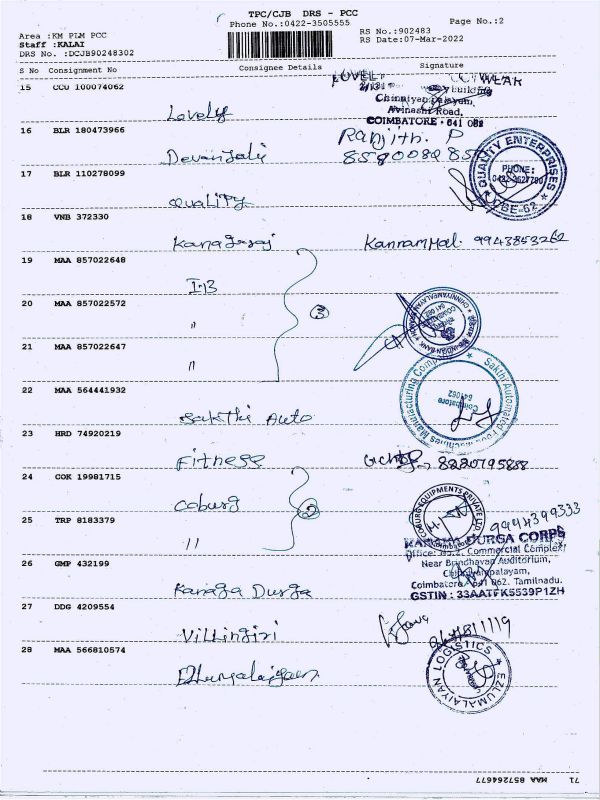 TPC/CJB DRS - PCC
Phone No.:0422-3505555
Page No.:2
Area :KM PLM PCC
Staff :KALAI
DRS No. :DCJB90248302
RS No.:902483
RS Date:07-Mar-2022
S No Consignment No Consignee Details Signature
15 CCU 100074062
Chinniyampalayam,
Avinashi Road,
COIMBATORE - 641 062
Lovely
16 BLR 180473966
Ranjith. P
Devanjali
17 BLR 110278099
QUALITY ENTERPRISES
PHONE:
CBE-62
Quality
18 VNB 372330
Kanagaraj Kanrammal. 9943853262
19 MAA 857022648
3
20 MAA 857022572
"
21 MAA 857022647
"
22 MAA 564441932
Coimbatore
641062
Sakthi Auto
23 HRD 74920219
Fitness 8220795888
24 COK 19981715
COBURG EQUIPMENTS PRIVATE LTD
Coburg 2
25 TRP 8183379
9944399333
"
DURGA CORPS
Commercial Complex,
26 GMP 432199
Near Brindhavan Auditorium,
Chinniyampalayam,
Coimbatore 062. Tamilnadu.
GSTIN : 33AATFK5539P1ZH
Kanaga Durga
27 DDG 4209554
Villingiri
28 MAA 566810574
EZLUMALAIYAN LOGISTICS
71 MAA 857264677